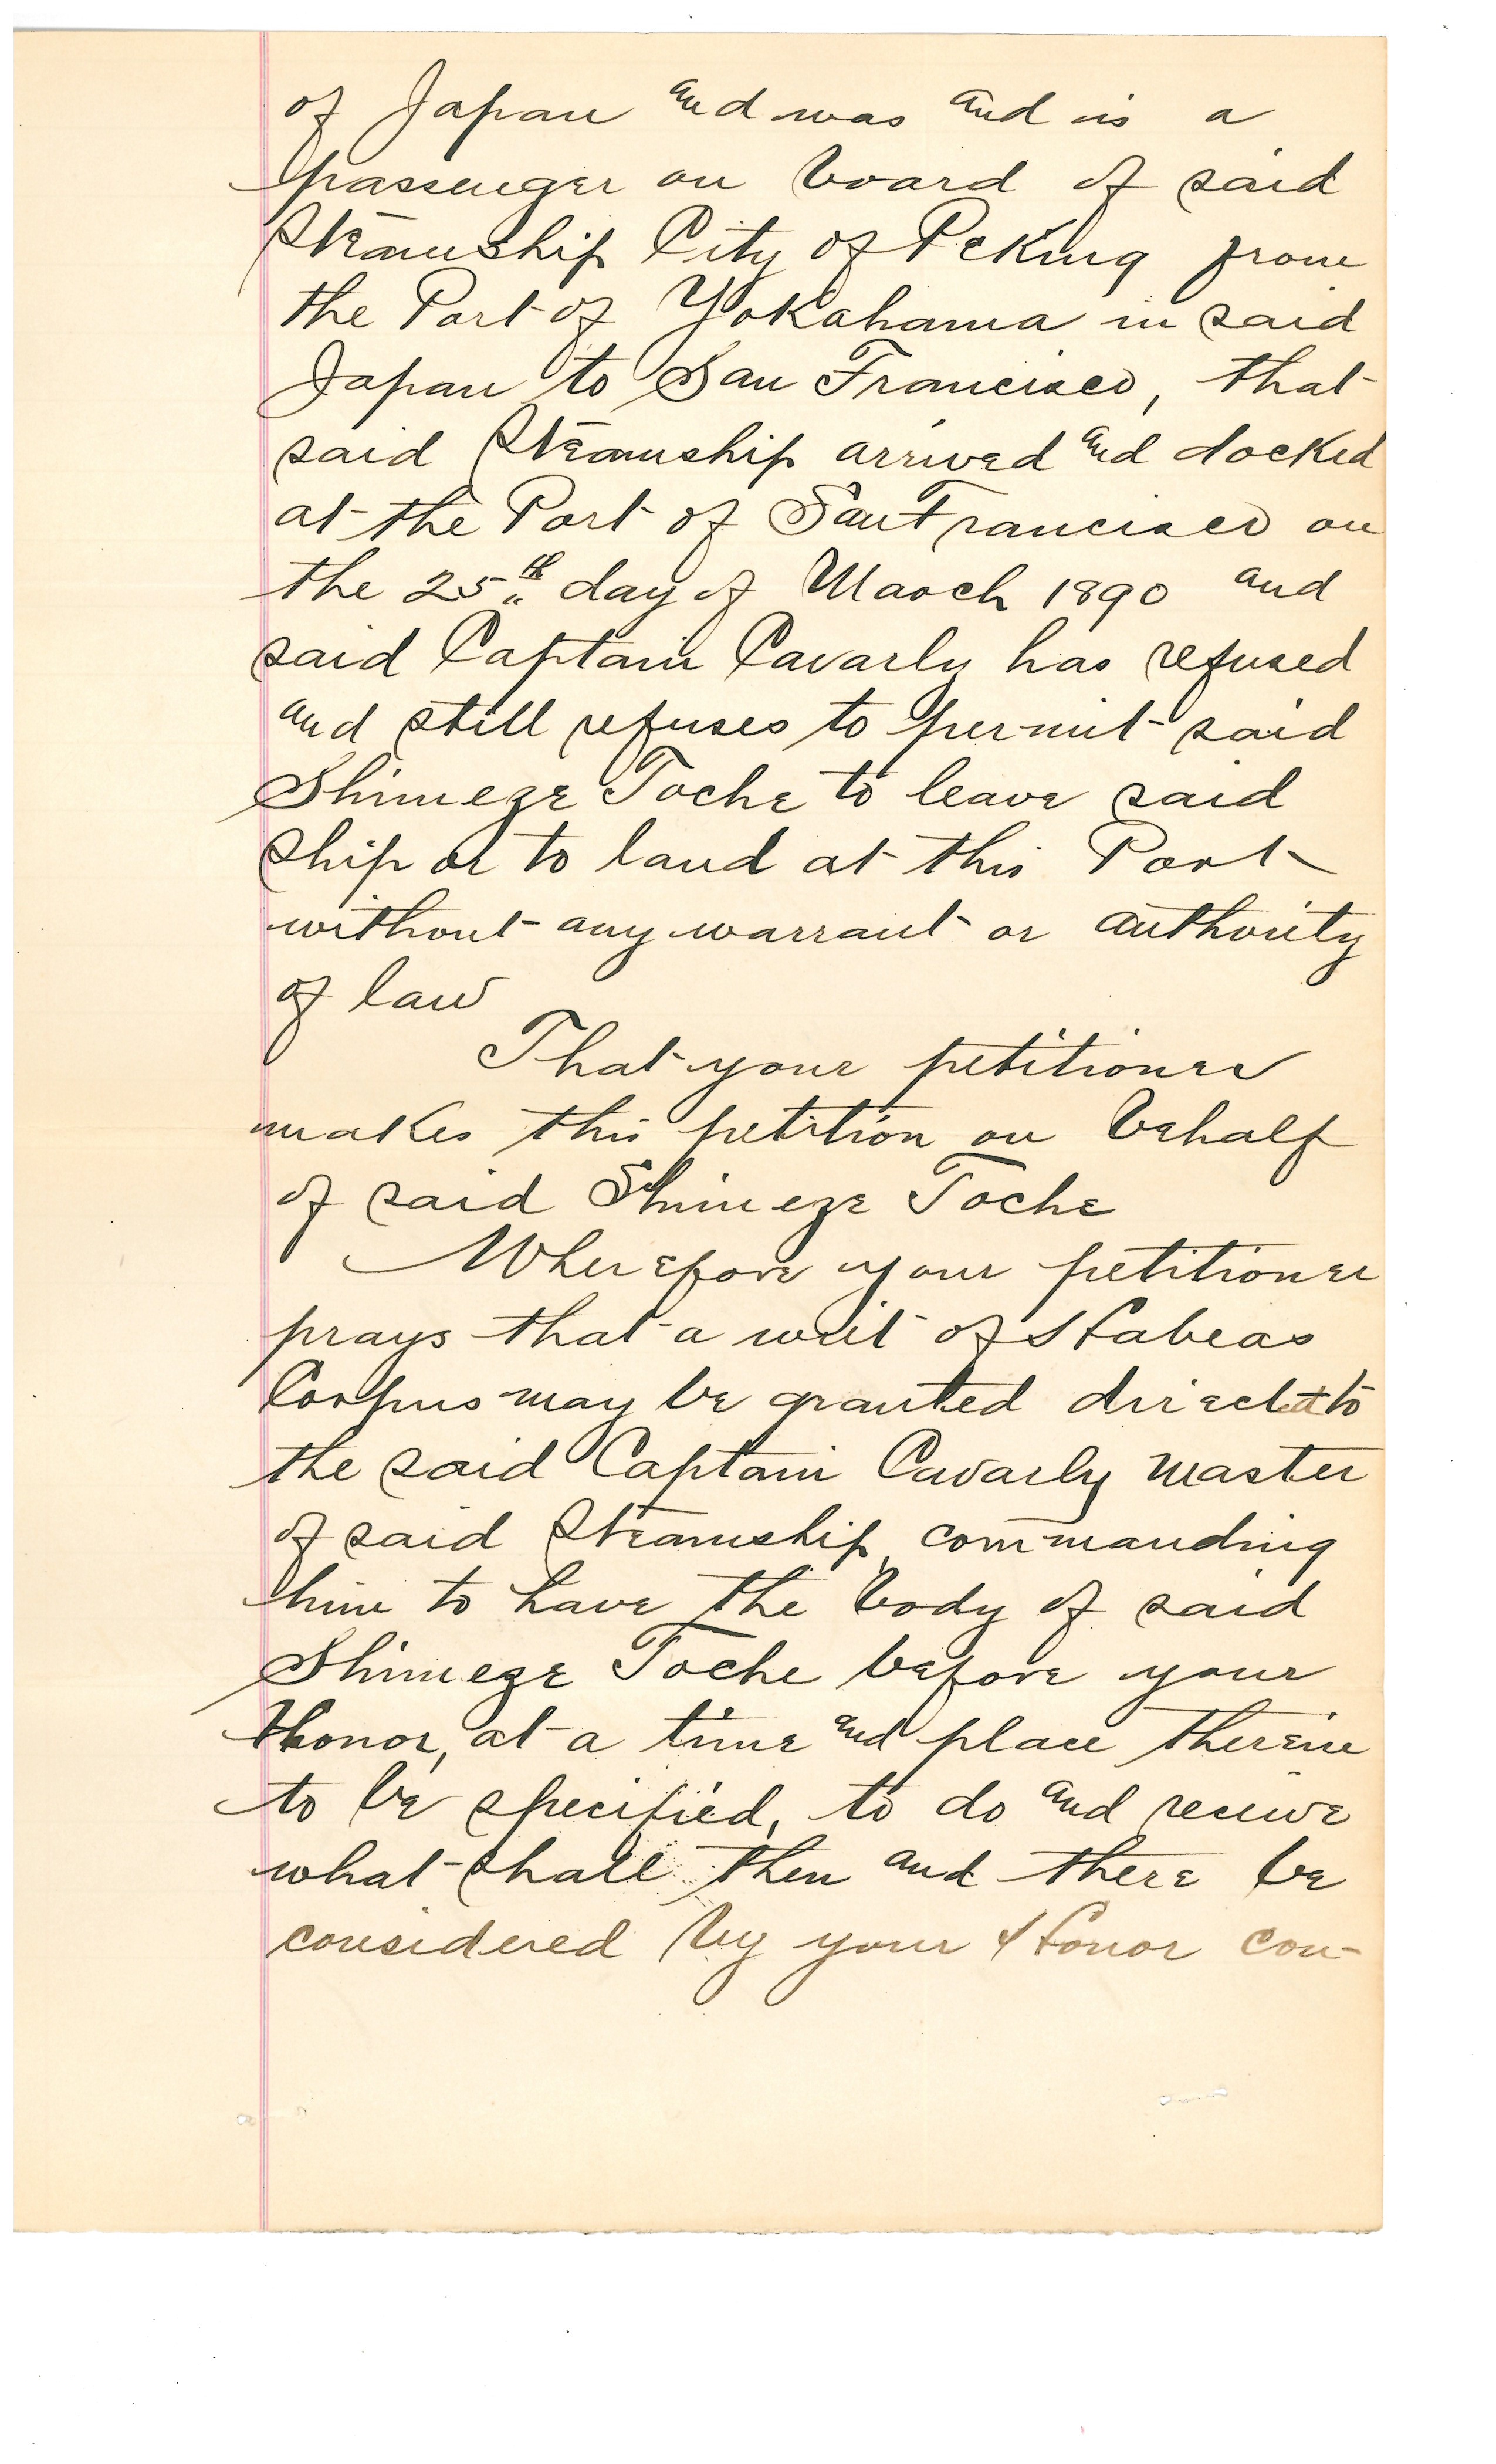 of Japan and was and is a
passenger on board of said
Steamship City of Peking from
the Port of Yokahama in said
Japan to San Francisco, that
said Steamship arrived and docked
at the Port of San Francisco on
the 25th day of March 1890 and
said Captain Cavarly has refused
and still refuses to permit said
Shimeze Toche to leave said
Ship or to land at this Port
without any warrant or authority
of law
That your petitioner
makes this petition on behalf
of said Shimeze Toche
Wherefore your petitioner
prays that a writ of Habeas
Corpus may be granted direct to
the said Captain Cavarly master
of said Steamship, commanding
him to have the body of said
Shimeze Toche before your
Honor, at a time and place therein
to be specified, to do and receive
what shall then and there be
considered by your Honor con-